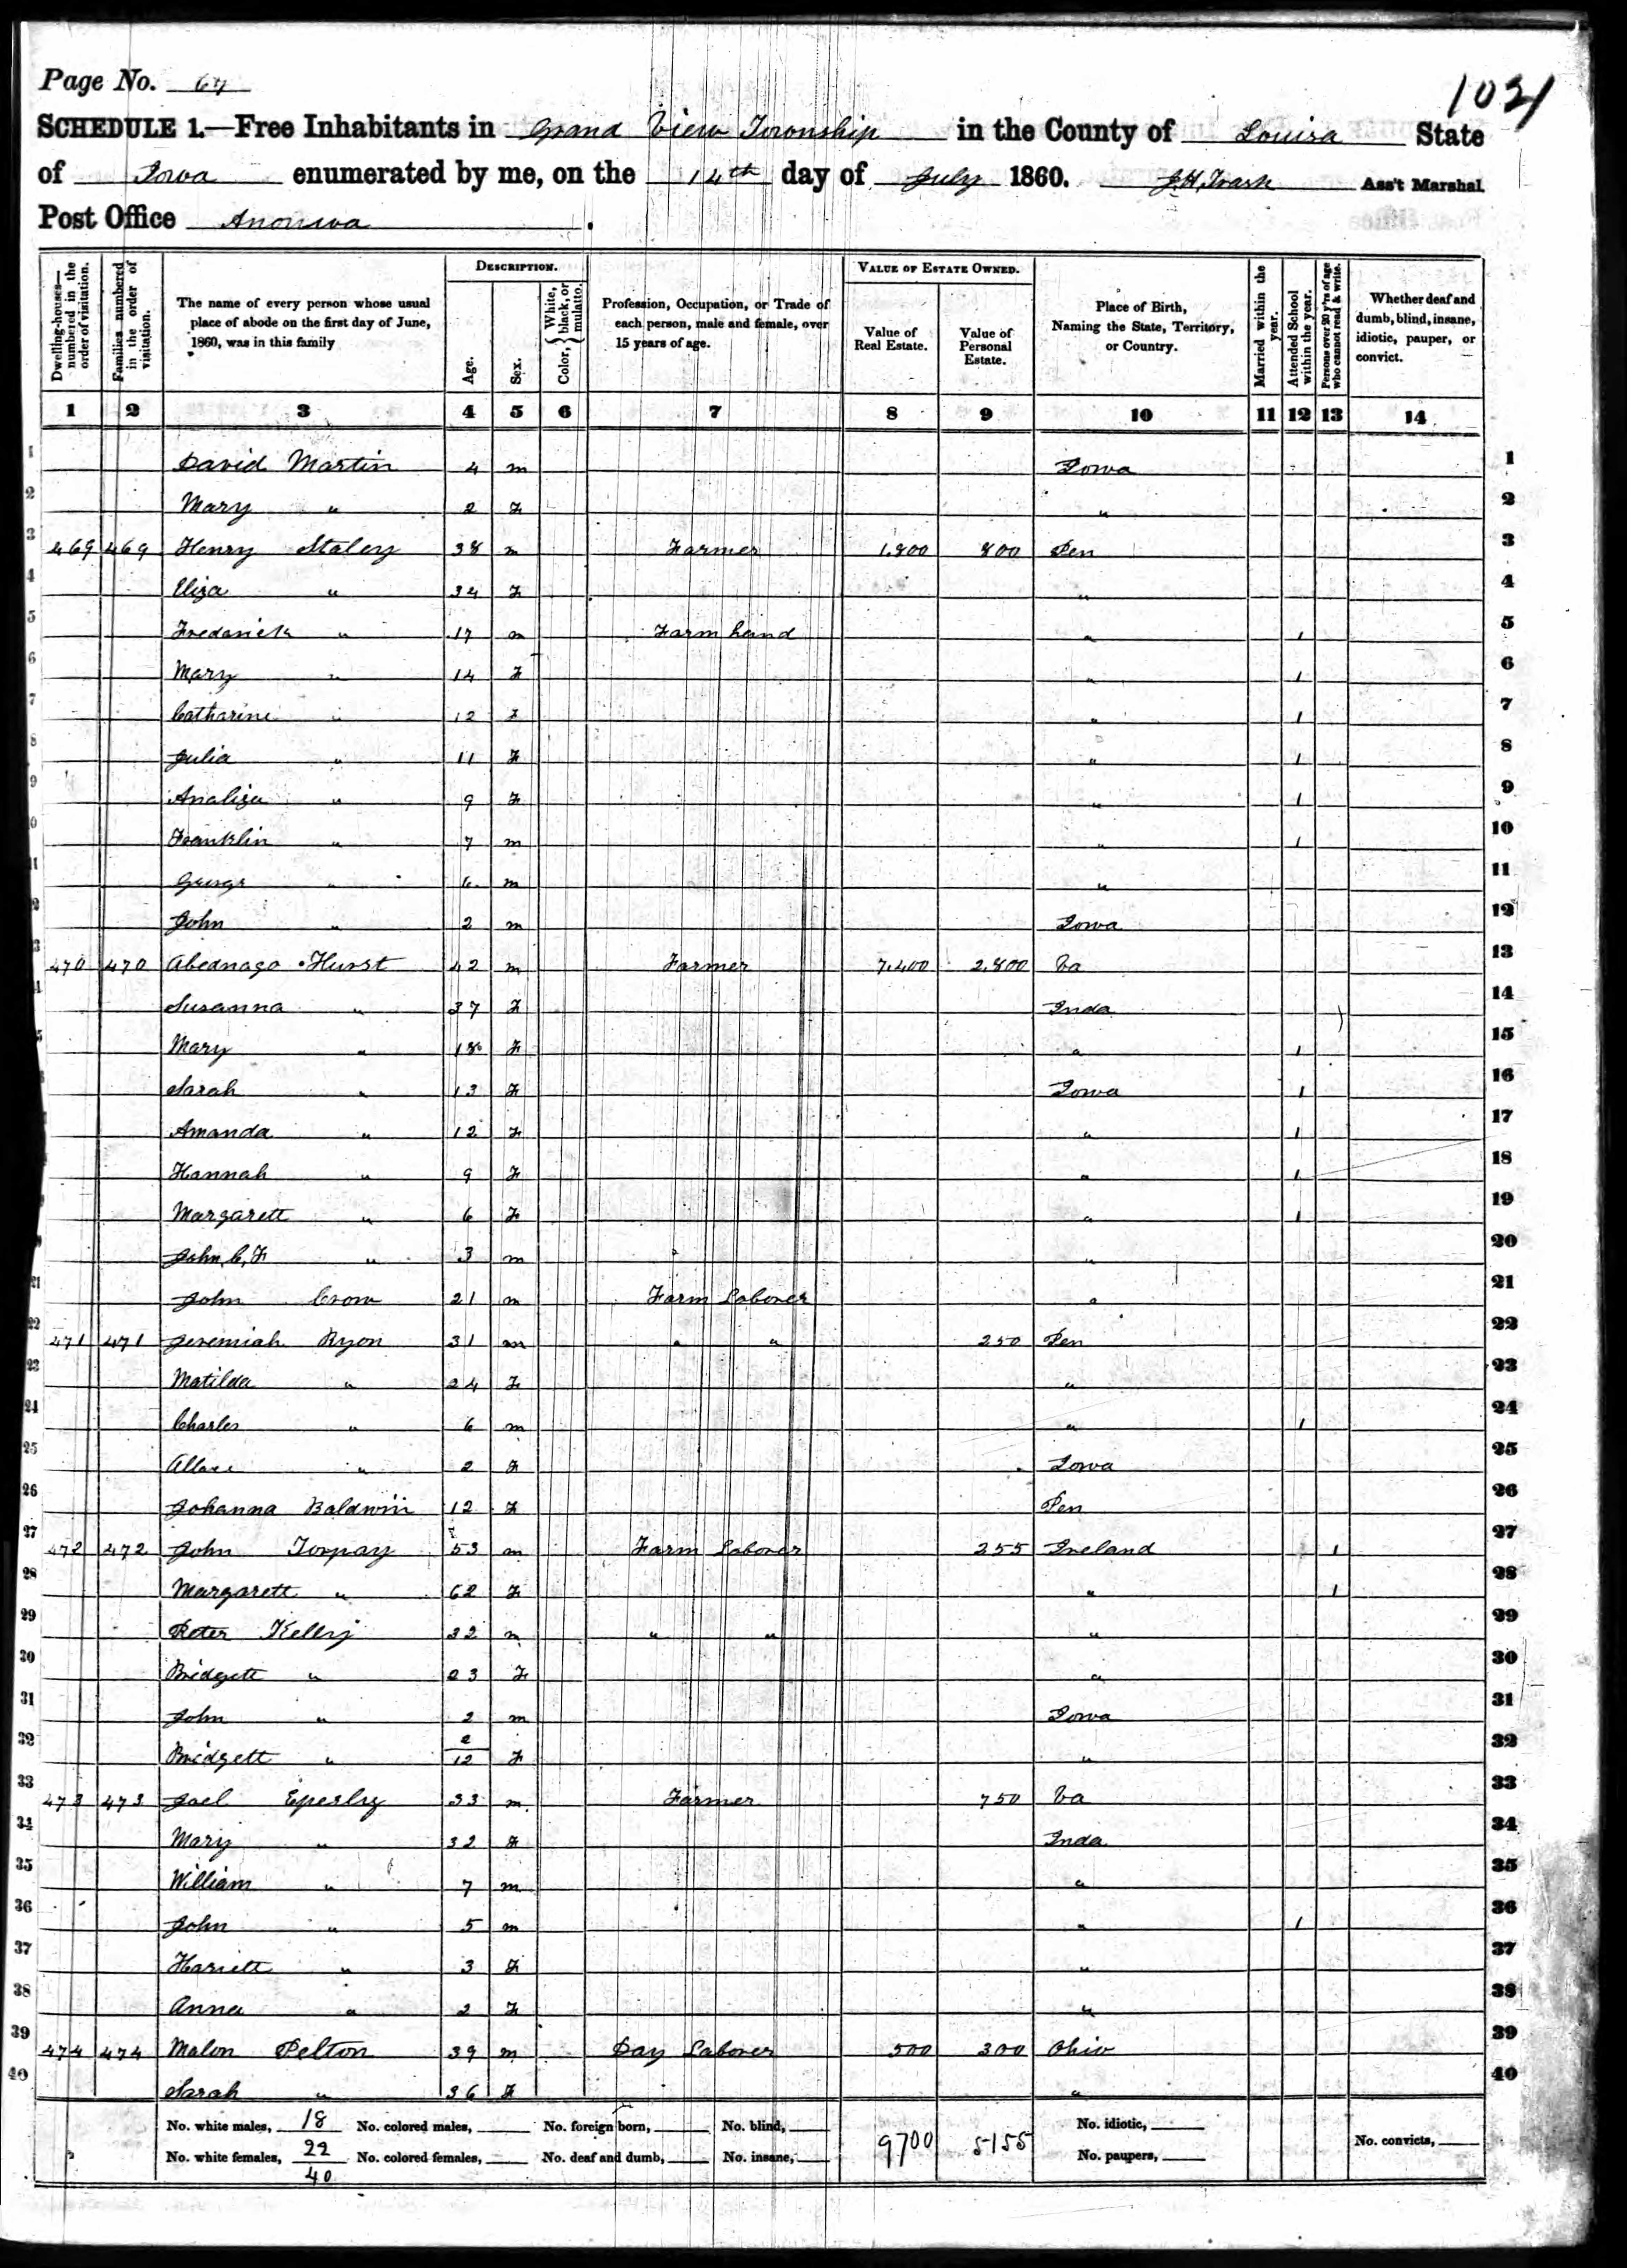 Page No. 64
1021
SCHEDULE 1.—Free Inhabitants in Grand View Township in the County of Louisa State
of Iowa enumerated by me, on the 14th day of July 1860. J. H. Trask Ass't Marshal.
Post Office
Dwelling-houses—numbered in the order of visitation. Families numbered in the order of visitation. The name of every person whose usual place of abode on the first day of June, 1860, was in this family DESCRIPTION. Age. Sex. Color, { White, black, or mulatto. Profession, Occupation, or Trade of each person, male and female, over 15 years of age. VALUE OF ESTATE OWNED. Value of Real Estate. Value of Personal Estate. Place of Birth, Naming the State, Territory, or Country. Married within the year. Attended School within the year. Persons over 20 y'rs of age who cannot read & write. Whether deaf and dumb, blind, insane, idiotic, pauper, or convict.
1 2 3 4 5 6 7 8 9 10 11 12 13 14
1 David Martin 4 m Iowa 1
2 Mary " 2 F " 2
3 469 469 Henry Staley 38 m Farmer 1,800 800 Pen 3
4 Eliza " 34 F " 4
5 Frederick " 17 m Farm hand " 1 5
6 Mary " 14 F " 1 6
7 Catharine " 12 F " 1 7
8 Julia " 11 F " 1 8
9 Analiza " 9 F " 1 9
10 Franklin " 7 m " 1 10
11 George " 6 m " 11
12 John " 2 m Iowa 12
13 470 470 Abednago Hurst 42 m Farmer 7,400 2,800 Va 13
14 Susanna " 37 F Inda 14
15 Mary " 18 F " 1 15
16 Sarah " 13 F Iowa 1 16
17 Amanda " 12 F " 1 17
18 Hannah " 9 F " 1 18
19 Margarett " 6 F " 1 19
20 John, C, F " 3 m " 20
21 John Crow 21 m Farm Laborer " 21
22 471 471 Jeremiah Ryon 31 m " " 250 Pen 22
23 Matilda " 24 F " 23
24 Charles " 6 m " 1 24
25 " 2 F Iowa 25
26 Johanna Baldwin 12 F Pen 26
27 472 472 John Torpay 53 m Farm Laborer 255 Ireland 1 27
28 Margarett " 62 F " 1 28
29 Peter Kelly 32 m " " " 29
30 Bridgett " 23 F " 30
31 John " 2 m Iowa 31
32 Bridgett " 2/12 F " 32
33 473 473 Joel Epesly 33 m Farmer 750 Va 33
34 Mary " 32 F Inda 34
35 William " 7 m " 35
36 John " 5 m " 1 36
37 Hariett " 3 F " 37
38 Anna " 2 F " 38
39 474 474 Malon Pelton 39 m Day Laborer 500 300 Ohio 39
40 Sarah " 36 F " 40
No. white males, 18 No. colored males, No. foreign born, No. blind, 9700 5155 No. idiotic, No. convicts,
No. white females, 22 No. colored females, No. deaf and dumb, No. insane, No. paupers,
40